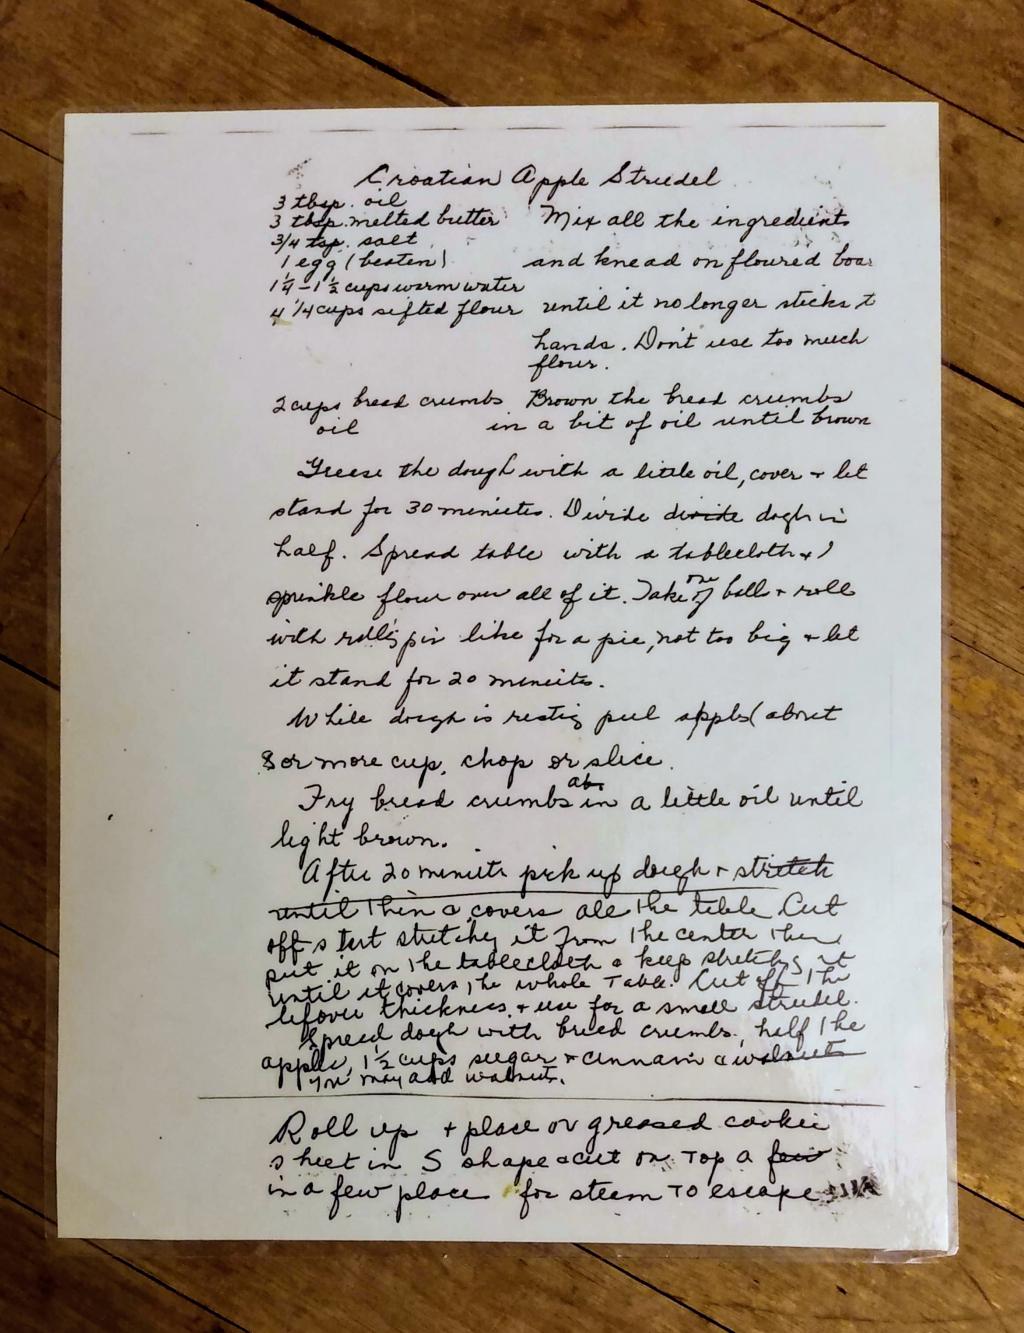 Croatian Apple Strudel
3 tbsp. oil
3 tbsp. melted butter Mix all the ingredients
3/4 tsp. salt
1 egg (beaten) and knead on floured boar
1 1/4 - 1 1/2 cups warm water
4 1/4 cups sifted flour until it no longer sticks t
hands. Don't use too much
flour.
2 cups bread crumbs Brown the bread crumbs
oil in a bit of oil until brown
Grease the dough with a little oil, cover + let
stand for 30 minutes. Divide divide dogh in
half. Spread table with a tablecloth +
sprinkle flour over all of it. Take one of ball + roll
with roll'g pin like for a pie, not too big + let
it stand for 20 minutes.
While dough is restig peel apples (about
8 or more cup, chop or slice.
Fry bread crumbs in a little oil until
light brown.
After 20 minute pick up dough + stretch
until thin & covers all the table Cut
off stretchg it from the center then
put it on the tablecloth & keep stretchg it
until it covers the whole Table. Cut off the
leftover thickness + use for a small strudel.
Spread dogh with bread crumbs, half the
apple, 1 1/2 cups sugar + cinnamon & walnuts
you may add walnuts.
Roll up + place on greased cookie
sheet in S shape & cut on Top a few
in a few place for steam To escape